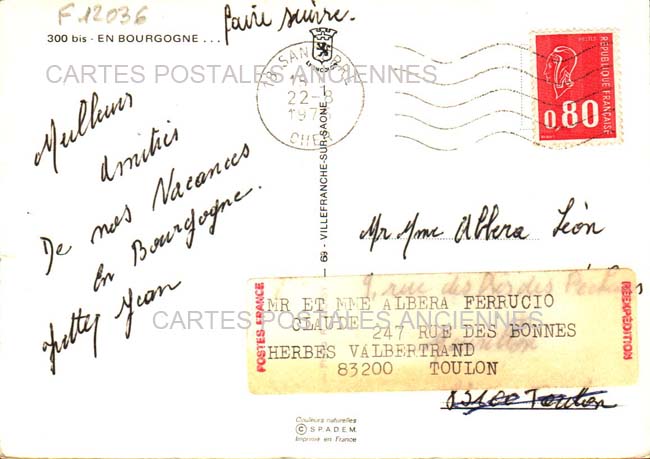 F 12036
faire suivre.
300 bis - EN BOURGOGNE ...
CARTES POSTALES ANCIENNES
18 SANC
22-8
197
CHER
RÉPUBLIQUE FRANÇAISE
0,80
Meilleurs
amitiés
De nos Vacances
en Bourgogne.
Jean
69 - VILLEFRANCHE-SUR-SAONE
Mr Mme Albera Léon
rue des
POSTES FRANCE
MR ET MME ALBERA FERRUCIO
CLAUDE 247 RUE DES BONNES
HERBES VALBERTRAND
83200 TOULON
RÉEXPÉDITION
CARTES POSTALES ANCIENNES
83100 Toulon
Couleurs naturelles
© S.P.A.D.E.M.
Imprimé en France